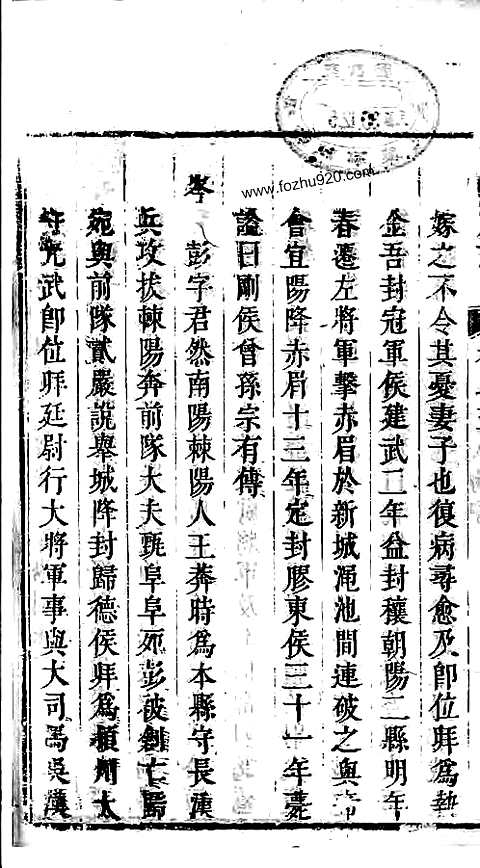 嫁之不令其憂妻子也復病尋愈及卽位拜爲執
金吾封冠軍侯建武二年益封穰朝陽二縣明年
春遷左將軍擊赤眉於新城澠池間連破之與
會宜陽降赤眉十三年定封膠東侯三十一年薨
謚曰剛侯曾孫宗有傳
岑彭字君然南陽棘陽人王莽時爲本縣守長漢
兵攻拔棘陽奔前隊大夫甄阜阜死彭被創亡歸
宛與前隊貳嚴說舉城降封歸德侯拜爲潁川太
守光武卽位拜廷尉行大將軍事與大司馬吳漢
www.fozhu920.com